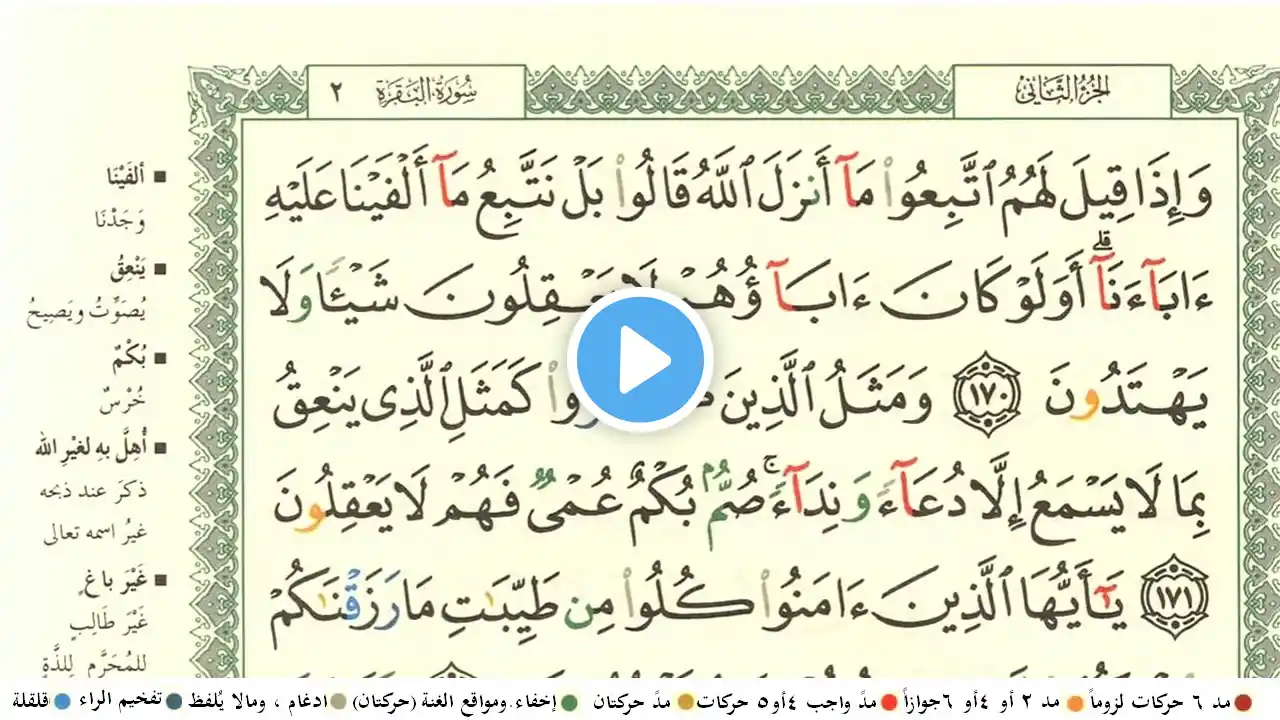 الجزء الثاني
سورة البقرة ٢
وَإِذَا قِيلَ لَهُمُ ٱتَّبِعُوا۟ مَآ أَنزَلَ ٱللَّهُ قَالُوا۟ بَلْ نَتَّبِعُ مَآ أَلْفَيْنَا عَلَيْهِ
ءَابَآءَنَآ ۗ أَوَلَوْ كَانَ ءَابَآؤُهُمْ لَا يَعْقِلُونَ شَيْـًٔا وَلَا
يَهْتَدُونَ ١٧٠ وَمَثَلُ ٱلَّذِينَ كَمَثَلِ ٱلَّذِى يَنْعِقُ
بِمَا لَا يَسْمَعُ إِلَّا دُعَآءً وَنِدَآءً ۚ صُمٌّۢ بُكْمٌ عُمْىٌ فَهُمْ لَا يَعْقِلُونَ
١٧١ يَـٰٓأَيُّهَا ٱلَّذِينَ ءَامَنُوا۟ كُلُوا۟ مِن طَيِّبَـٰتِ مَا رَزَقْنَـٰكُمْ
■ أَلفَيْنَا
وَجَدْنَا
■ يَنْعِقُ
يُصَوِّتُ ويَصِيحُ
■ بُكْمٌ
خُرْسٌ
■ أُهِلَّ بِهِ لغيْرِ الله
ذكرَ عند ذبحه
غيرُ اسمه تعالى
■ غَيْرَ باغٍ
غَيْرَ طَالِبٍ
للمُحَرَّمِ لِلذَّةِ
مد ٦ حركات لزوماً مد ٢ أو ٤ أو ٦ جوازاً مدّ واجب ٤ أو ٥ حركات مدّ حركتان إخفاء. ومواقع الغنة (حركتان) ادغام ، ومالا يُلفظ تفخيم الراء قلقلة